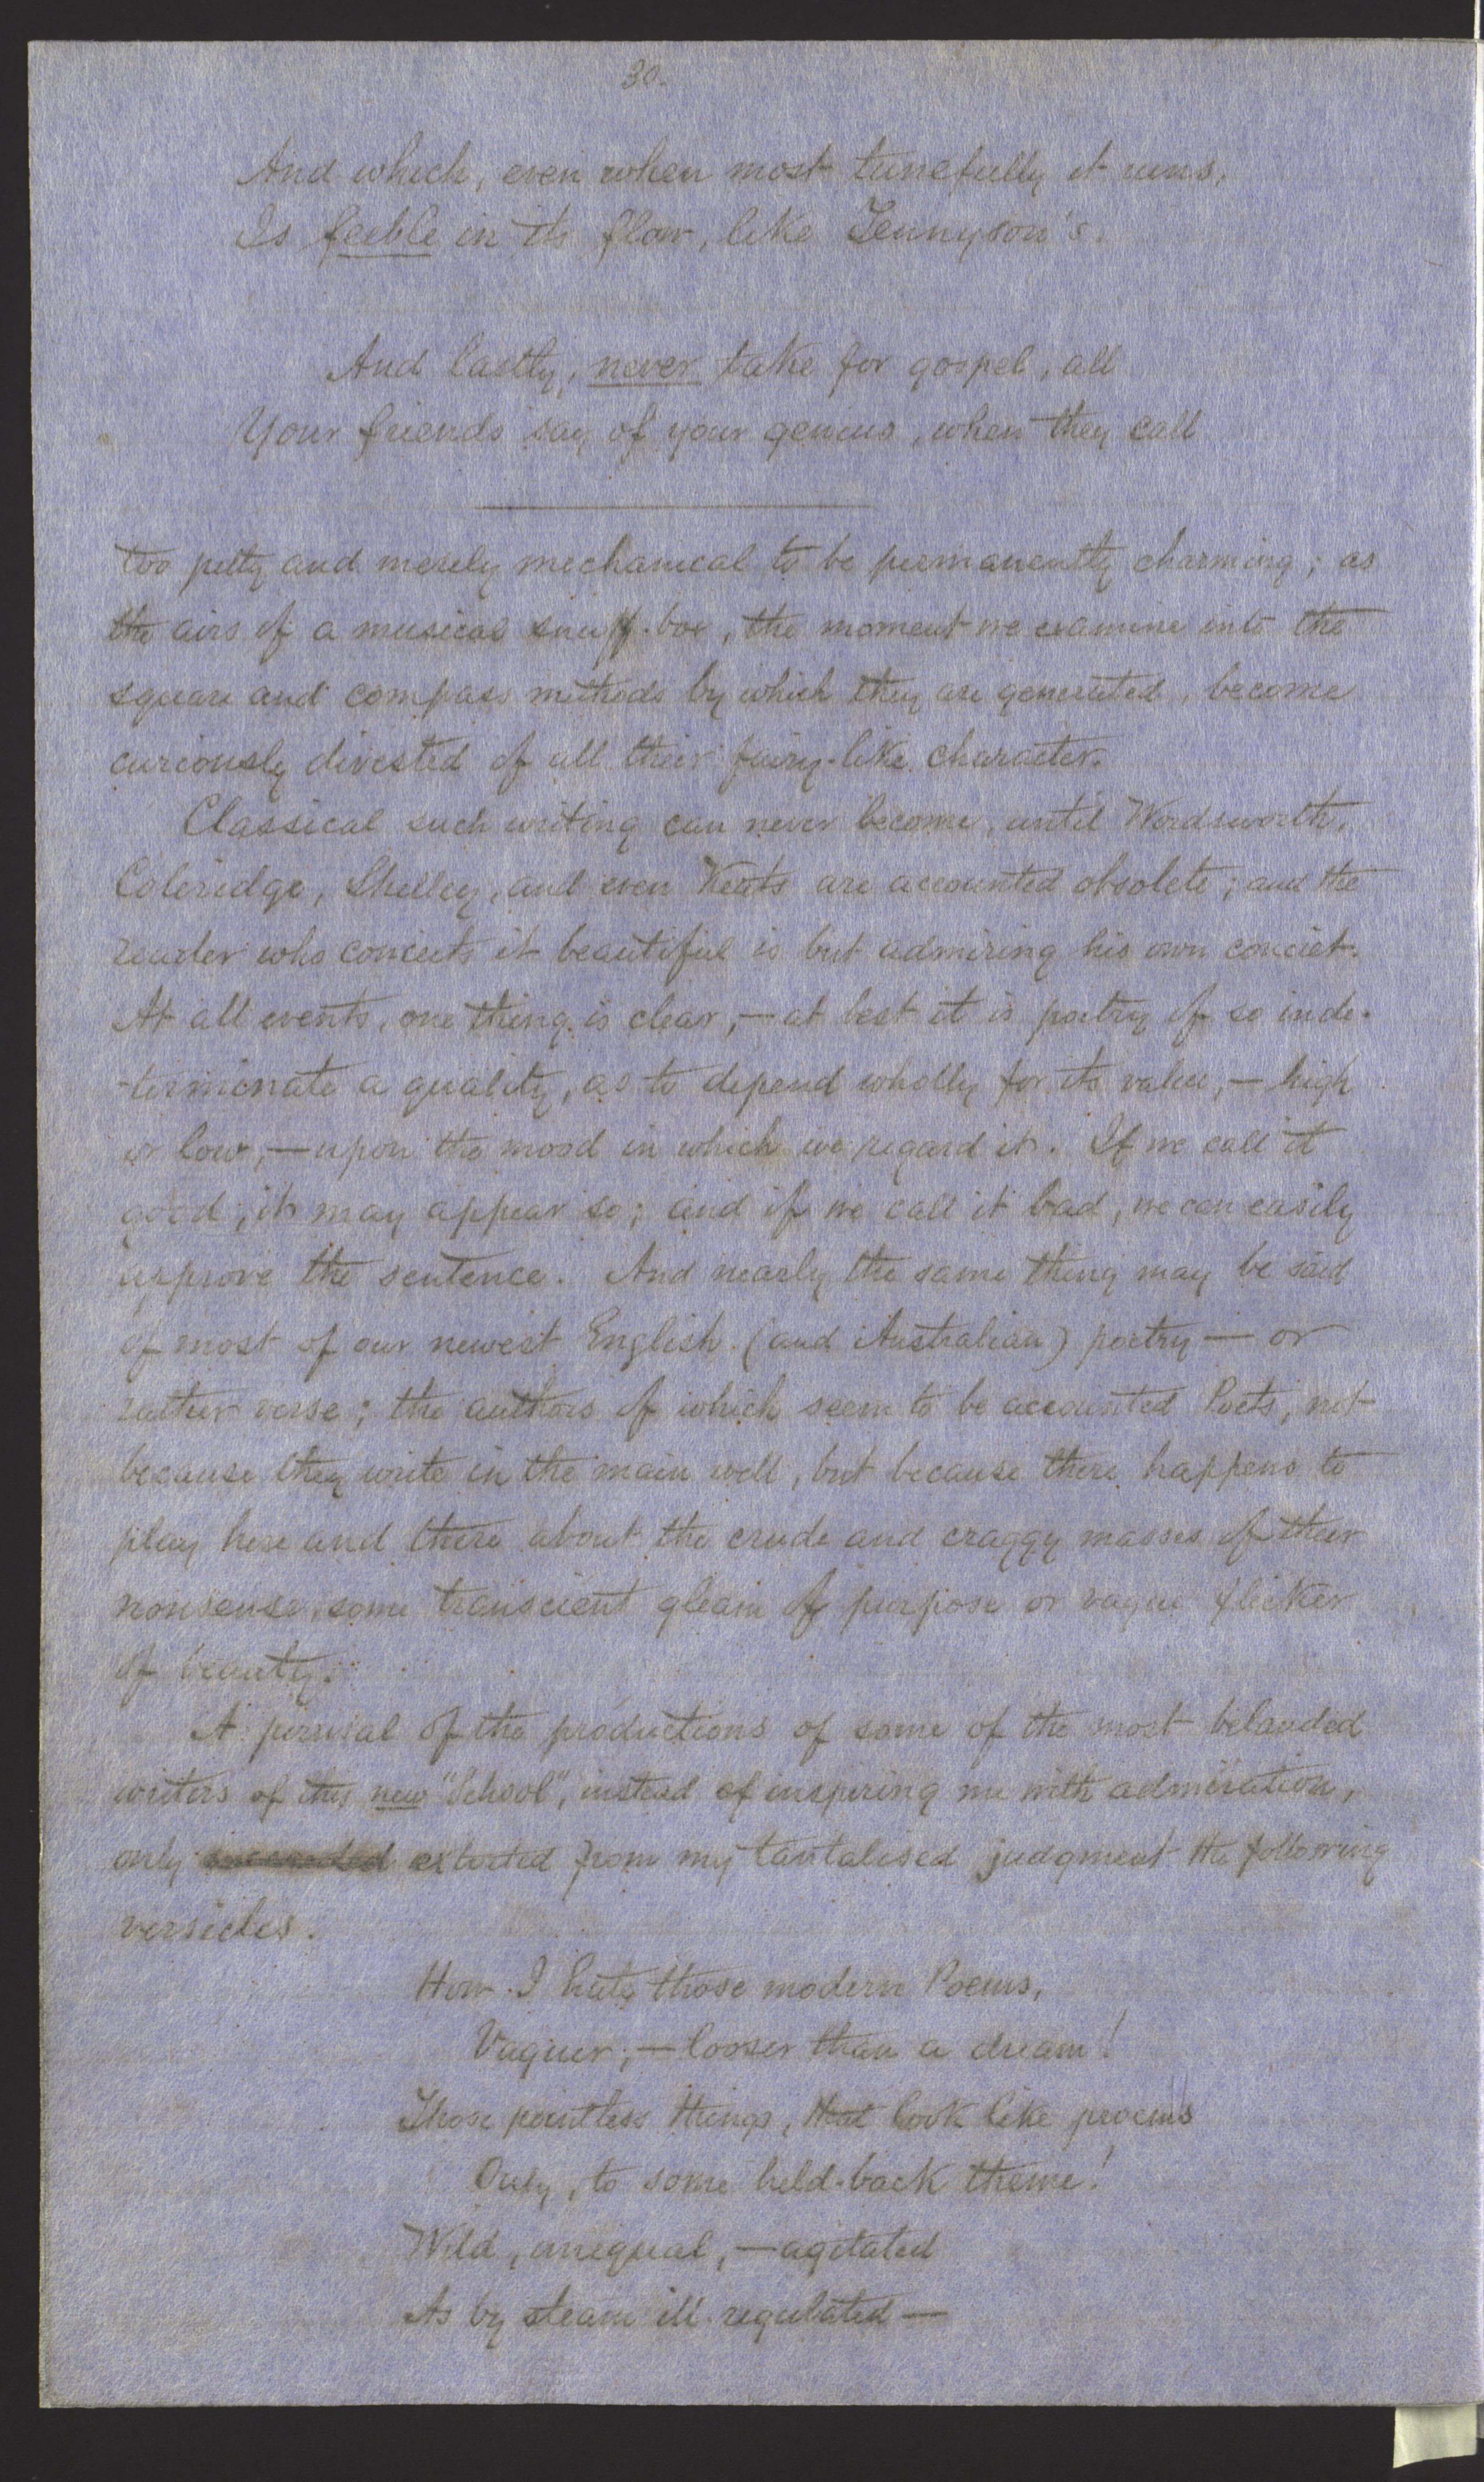 30.
And which, even when most tunefully it runs,
Is feeble in its flow, like Tennyson's.
And lastly, never take for gospel, all
Your friends say of your genius, when they call
too petty and merely mechanical to be permanently charming; as
the airs of a musical snuff-box, the moment we examine into the
square and compass methods by which they are generated, become
curiously divested of all their fairy-like character.
Classical such writing can never become, until Wordsworth,
Coleridge, Shelley, and even Keats are accounted obsolete; and the
reader who conceits it beautiful is but admiring his own conciet.
At all events, one thing is clear,—at best it is poetry of so inde-
-terminate a quality, as to depend wholly for its value,—high
or low,—upon the mood in which we regard it. If we call it
good, it may appear so; and if we call it bad, we can easily
approve the sentence. And nearly the same thing may be said
of most of our newest English (and Australian) poetry — or
rather verse; the authors of which seem to be accounted Poets, not
because they write in the main well, but because there happens to
play here and there about the crude and craggy masses of their
nonsense, some transcient gleam of purpose or vague flicker
of beauty.
A perusal of the productions of some of the most belauded
writers of this new "School", instead of inspiring me with admiration,
only extorted from my tantalised judgment the following
versicles.
How I hate those modern Poems,
Vaguer,—looser than a dream!
Those pointless things, that look like proems
Only, to some held-back theme!
Wild, unequal,—agitated
As by steam ill regulated—